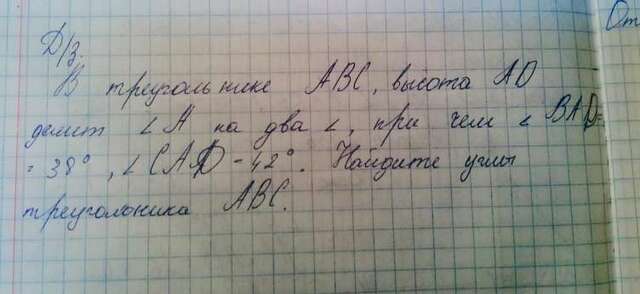 Д/з.
В треугольнике ABC, высота AD
делит ∠A на два ∠, при чем ∠ BAD=
= 38°, ∠CAD = 42°. Найдите углы
треугольника ABC.
От